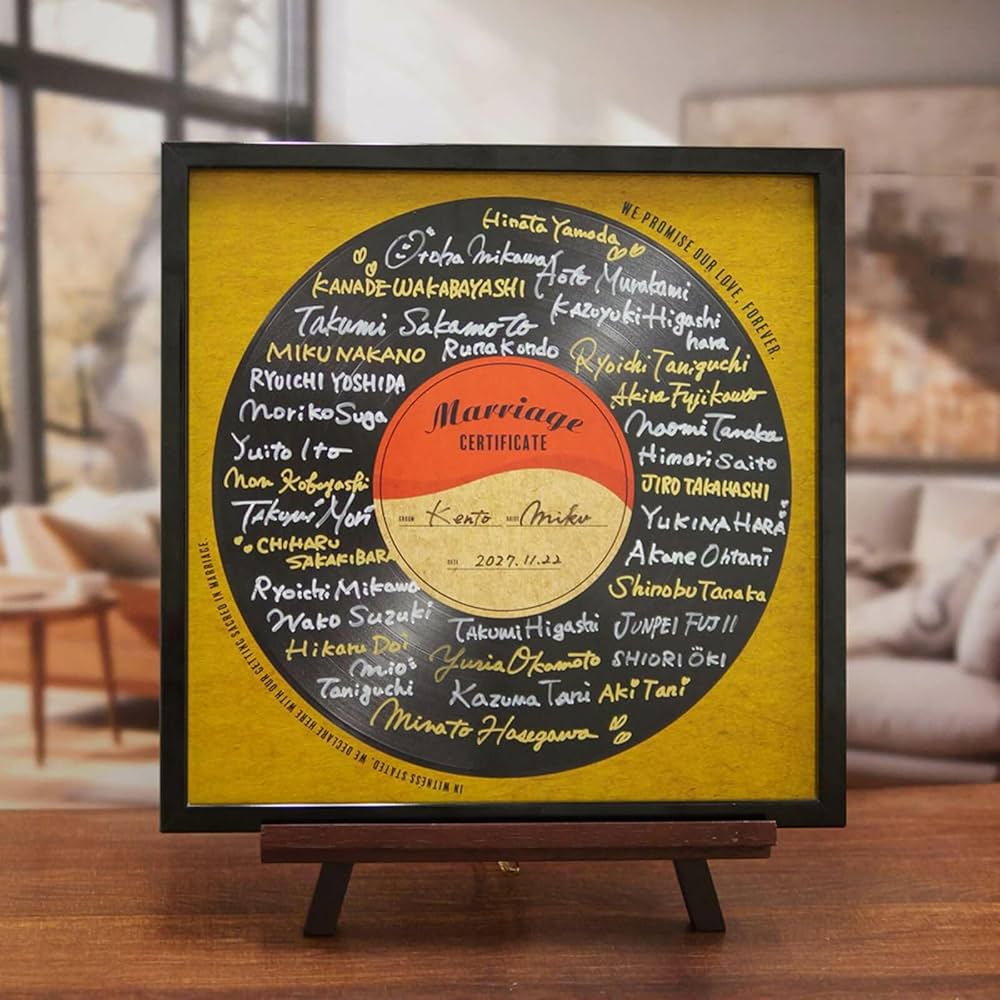 WE PROMISE OUR LOVE, FOREVER.
Hinata Yamada
Otoha Mikawa
Aoto Murakami
KANADE WAKABAYASHI
KAZUYUKI Higashi
hara
Takumi Sakamoto
MIKU NAKANO
Runa Kondo
Ryoichi Taniguchi
RYUICHI YOSHIDA
Akira Fujikawa
Noriko Suga
Naomi Tanaka
Yuito Ito
Himari Saito
Non Kobayashi
JIRO TAKAHASHI
Takuya Mori
YUKINA HARA
CHIHARU
SAKAKIBARA
Akane Ohtani
Ryoichi Mikawa
Shinobu Tanaka
Wako Suzuki
TAKUMI Higashi
JUNPEI FUJII
Hikaru Doi
Yuria Okamoto
SHIORI ŌKI
Mio
Taniguchi
KAZUMA TANI
AKI TANI
Minato Hasegawa
Marriage
CERTIFICATE
GROOM Kento BRIDE Miku
DATE 2027.11.22
IN WITNESS STATED, WE DECLARE HERE WITH OUR GETTING SACRED IN MARRIAGE.